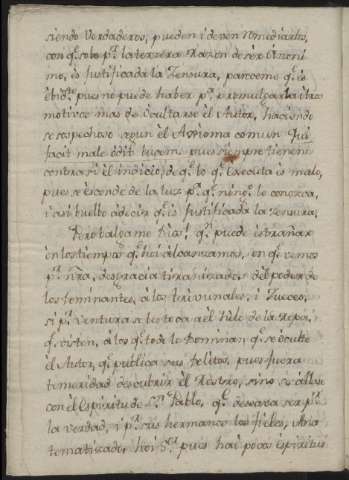 siendo Verdaderos, pueden i deven remediarse,
con q.e solo p.r la tercera Razon de ser Anoni-
mo, es Justificada la Zensura, parecome q.e es
ebid.te pues no puede haber p.a promulgarla otro
motivo mas de ocultarse el Autor, haciendo
se sospechoso segun el Axioma comun Qui
facit male odit lucem, pues siempre tiene en
contra sì el indicio, de q.e lo q.e executa es malo,
pues se esconde de la luz p.a q.e ning.o le conozca,
i asi buelbo à decir q.e es Justificada la zensura.
Pero balgame Dios! q.e puede estrañar
en los tiempos q.e hoi alcanzamos, en q.e vemos
p.r n̄ra desgracia tiranizados del poder de
los Dominantes, à los tribunales, i Jueces,
si p.r ventura se les toca al filo de la Ropa,
q.e visten, à los q.e todo lo Dominan q.e se oculte
el Autor, q.e publica sus delitos, pues fuera
temeridad descubrir el Rostro, sino se allase
con el Espiritu de S.n Pablo, q.e deseava ser p.r
la verdad, i p.r sus hermanos los fieles, Ana
tematizado, hoi S.r pues hai pocos espiritus